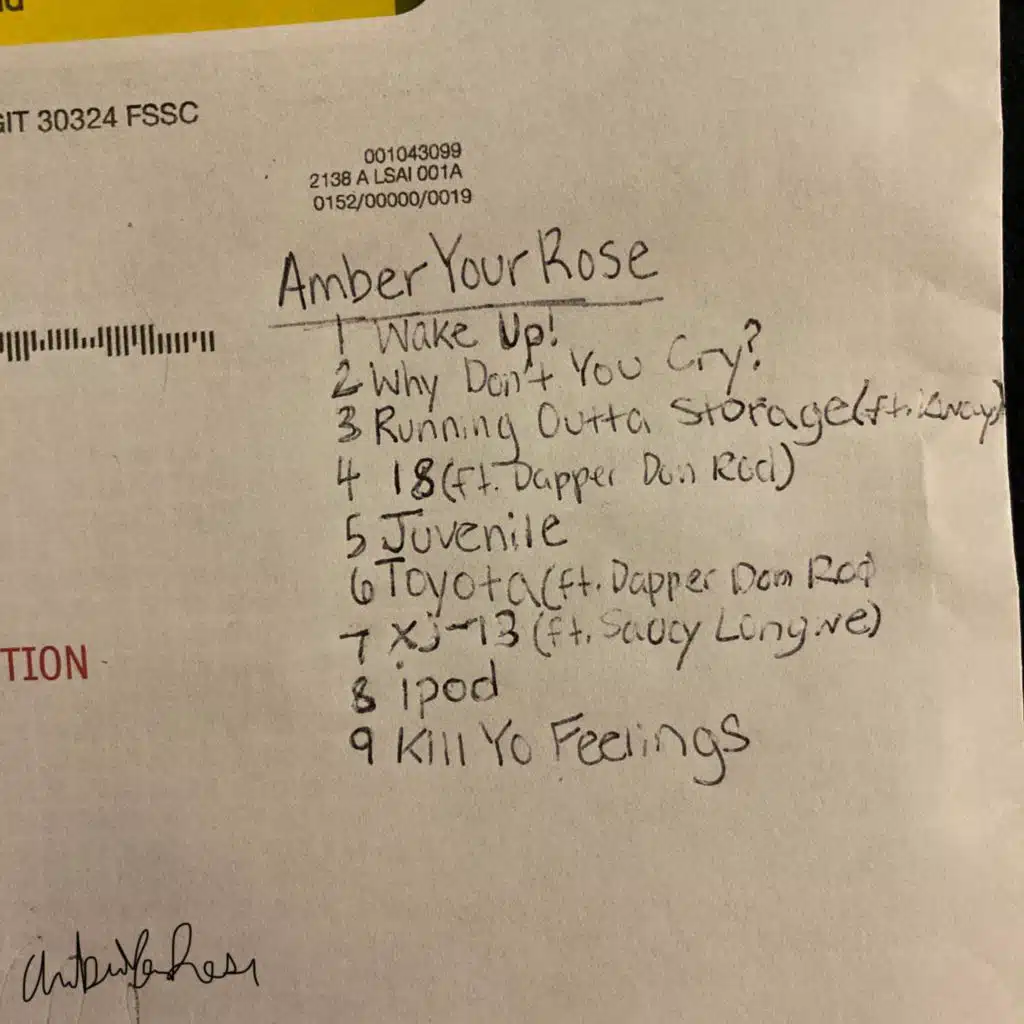 30324 FSSC
001043099
2138 A LSAI 001A
0152/00000/0019
Amber Your Rose
1 Wake Up!
2 Why Don't You Cry?
3 Running Outta Storage (ft. Kway)
4 18 (ft. Dapper Don Rod)
5 Juvenile
6 Toyota (ft. Dapper Don Rod
7 XJ-13 (ft. Saucy Longwe)
TION
8 ipod
9 Kill Yo Feelings